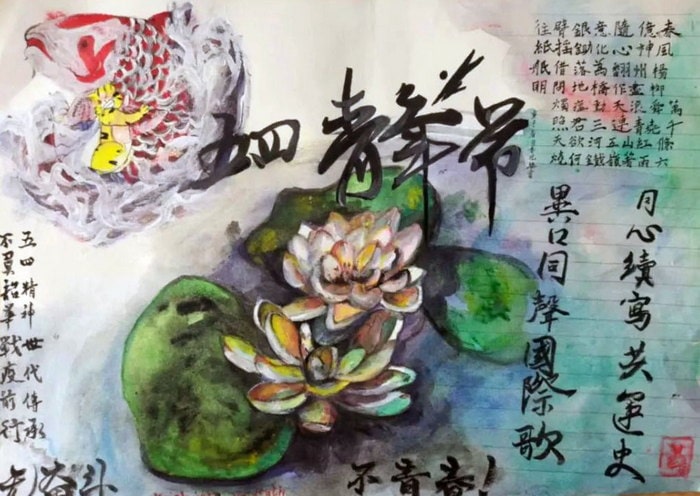 五四青年节
春風楊柳萬千條六
億神州盡舜堯紅雨
隨心翻作浪青山着
意化為橋天連五嶺
銀鋤落地動三河鐵
臂搖借問瘟君欲何
往紙船明燭照天燒
同心續寫共運史
異口同聲國際歌
五四精神世代傳承
不負韶華戰疫前行
无奋斗 不青春!